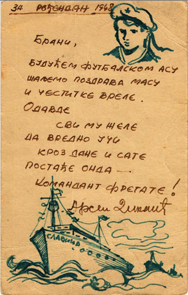 ЗА РОЂЕНДАН 1968
БРАНИ,
БУДУЋЕМ ФУДБАЛСКОМ АСУ
ШАЉЕМО ПОЗДРАВА МАСУ
И ЧЕСТИТКЕ ВРЕЛЕ.
ОДАВДЕ
СВИ МУ ЖЕЛЕ
ДА ВРЕДНО УЧИ
КРОЗ ДАНЕ И САТЕ
ПОСТАЋЕ ОНДА...
КОМАНДАНТ ФРЕГАТЕ!